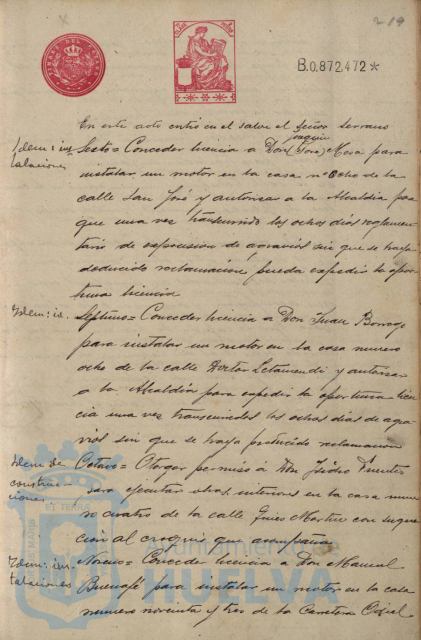 219
B.0.872,472*
En este acto entró en el salon el Señor Serrano
Idem: ins
talaciones
Joaquin
Sesto = Conceder licencia a Don (José) Mesa para
instalar un motor en la casa nº ocho de la
calle San José y autorizar a la Alcaldia pa
que una vez transcurrido los ochos dias reglamen
tario de exposicion de agravios sin que se haya
deducido reclamación, pueda expedir la opor
tuna licencia
Idem: id.
Septimo = Conceder licencia a Don Juan Borrego
para instalar un motor en la casa numero
ocho de la calle Doctor Letamendi y autorizar
a la Alcaldia para expedir la oportuna licen
cia una vez transcurridos los ochos dias de agra
vios sin que se haya producido reclamacion
Idem de
construc
ciones
Octavo = Otorgar permiso a Don Isidro Puentes
para ejecutar obras interiores en la casa nume
ro cuatro de la calle Gines Martin con sugec
ción al croquis que acompaña
Idem: ins
talaciones
Noveno = Conceder licencia a Don Manuel
para instalar un motor en la casa
numero noventa y tres de la Carretera Odiel
Ayuntamiento de
HUELVA